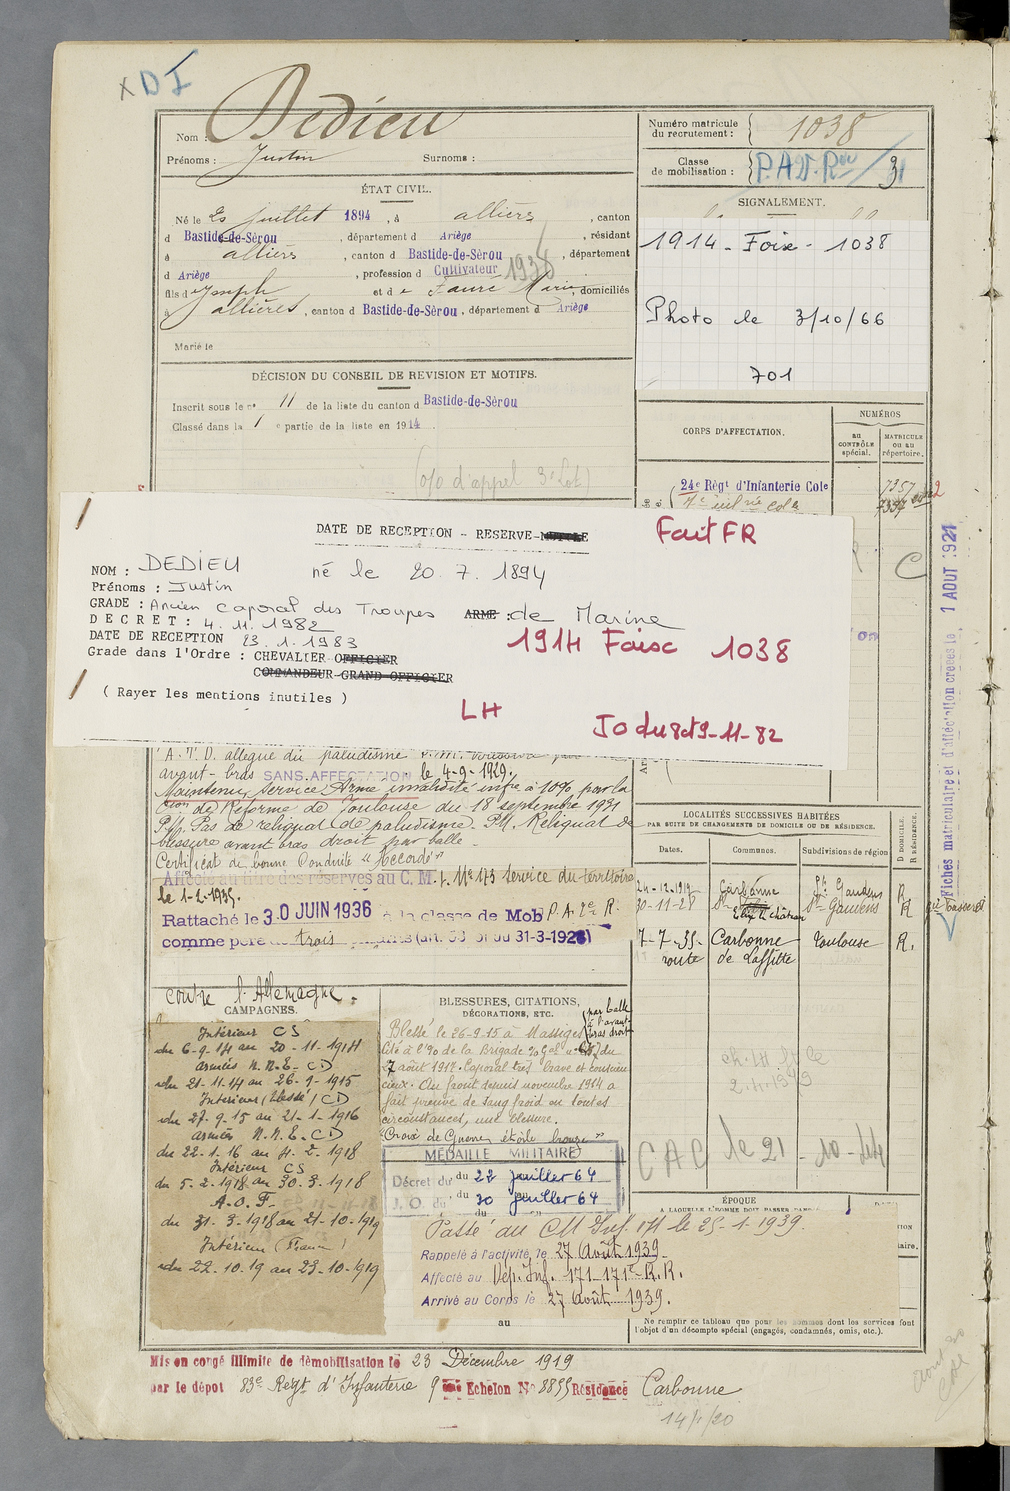 x D I
Nom : Dedieu
Prénoms : Justin Surnoms :
ÉTAT CIVIL.
Né le 20 juillet 1894, à allières, canton
d Bastide-de-Sérou, département d Ariège, résidant
à allières, canton d Bastide-de-Sérou, département
d Ariège, profession d Cultivateur 1938
fils d Joseph et d e Fauré Marie, domiciliés
à allières, canton d Bastide-de-Sérou, département d Ariège
Marié le
DÉCISION DU CONSEIL DE REVISION ET MOTIFS.
Inscrit sous le n° 11 de la liste du canton d Bastide-de-Sérou
Classé dans la 1 e partie de la liste en 1914.
(o/o d'appel 3e Lot)
Numéro matricule
du recrutement : 1038
Classe
de mobilisation : P.A.D.
SIGNALEMENT.
1914 - Foix - 1038
Photo le 3/10/66
701
CORPS D'AFFECTATION.
NUMÉROS
au
CONTRÔLE
spécial.
MATRICULE
ou au
répertoire.
24e Régt d'Infanterie Cole
7357
DATE DE RECEPTION - RESERVE-
NOM : DEDIEU né le 20.7.1894
Prénoms : Justin
GRADE : Ancien caporal des Troupes ARME : de Marine
DECRET : 4.11.1982
DATE DE RECEPTION 23.1.1983
Grade dans l'Ordre : CHEVALIER-OFFICIER
COMMANDEUR-GRAND OFFICIER
( Rayer les mentions inutiles )
Fait FR
1914 Foix 1038
LH
JO du 8et9-11-82
1 AOUT 1921
Fiches matriculaire et d'affectation créées le
A.T.D. allégue du paludisme
avant-bras SANS AFFECTATION le 4-9-1929.
Maintenu service Armé invalidité infre à 10% par la
Cion de Réforme de Toulouse du 18 septembre 1931
P.M. Pas de reliquat de paludisme. P.M. Reliquat de
blessure avant bras droit par balle.
Certificat de bonne Conduite "Accordé"
Affecté au titre des réserves au C. M. I. No 173 service du territoire
le 1-2-1935.
Rattaché le 30 JUIN 1936 à la classe de Mob P.A. 2e R.
comme père de trois enfants (art. 58 loi du 31-3-1928)
LOCALITÉS SUCCESSIVES HABITÉES
PAR SUITE DE CHANGEMENTS DE DOMICILE OU DE RÉSIDENCE.
Dates.
Communes.
Subdivisions de région
D DOMICILE.
R RÉSIDENCE.
24-12-1919 Carbonne St Gaudens R
30-11-28 St Gaudens R
7-7-35 Carbonne Toulouse R.
route de Laffitte
ch. 14
2.4.1939
CAC le 21-10-44
contre l'Allemagne.
CAMPAGNES.
Intérieur CS
du 6-9-14 au 20-11-1914
armées N.N.E. CD
du 21-11-14 au 26-9-1915
Intérieur (blessé) CD
du 27-9-15 au 21-1-1916
armées N.N.E. CD
du 22-1-16 au 4-2-1918
Intérieur CS
du 5-2-1918 au 30-3-1918
A.O.F.
du 31-3-1918 au 21-10-1919
Intérieur (France)
du 22-10-19 au 23-10-1919
BLESSURES, CITATIONS,
DÉCORATIONS, ETC.
Blessé le 26-9-15 à Massiges par balle à l'avant-bras droit
Cité à l'Oo de la Brigade du
7 août 1917. Caporal très brave et conscien
cieux. Au front depuis novembre 1914 a
fait preuve de sang froid en toutes
circonstances, une blessure.
"Croix de Guerre, étoile bronze"
MÉDAILLE MILITAIRE
Décret du du 22 juillet 64
J.O. du du 30 juillet 64
ÉPOQUE
A LAQUELLE L'HOMME DOIT PASSER DANS
Passé au CM Inf. 171 le 25-1-1939.
Rappelé à l'activité, le 27 Août 1939.
Affecté au Dép. Inf. 171-171e R.R.
Arrivé au Corps le 27 Août 1939.
au
Ne remplir ce tableau que pour les hommes dont les services font
l'objet d'un décompte spécial (engagés, condamnés, omis, etc.).
Mis en congé illimité de démobilisation le 23 Décembre 1919
par le dépôt 83e Regt d'Infanterie 9 ème Echelon No 8855 Résidence Carbonne
14/4/20